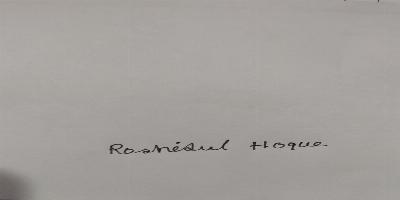 Rashedul Hoque.